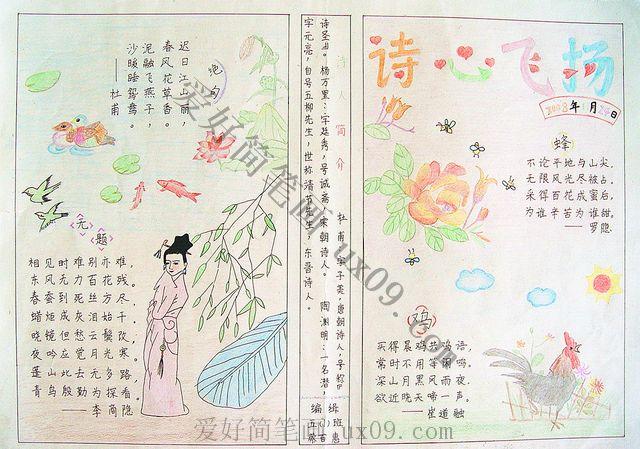 诗心飞扬
2008年1月20日
蜂
不论平地与山尖,
无限风光尽被占。
采得百花成蜜后,
为谁辛苦为谁甜。
——罗隐
鸡
买得晨鸡共鸡语,
常时不用等闲鸣。
深山月黑风雨夜,
欲近晓天啼一声。
崔道融
诗人简介
杜甫,字子美,唐朝诗人,号称
诗圣。杨万里:字廷秀,号诚斋,宋朝诗人。陶渊明:一名潜,
字元亮,自号五柳先生,世称清节先生,东晋诗人。
编辑
绝句
迟日江山丽,
春风花草香。
泥融飞燕子,
沙暖睡鸳鸯。
——杜甫
无题
相见时难别亦难,
东风无力百花残。
春蚕到死丝方尽,
蜡炬成灰泪始干
晓镜但愁云鬓改,
夜吟应觉月光寒。
蓬山此去无多路
青鸟殷勤为探看
——李商隐
爱好简笔画 ux09.com
爱好简笔画 ux09.com